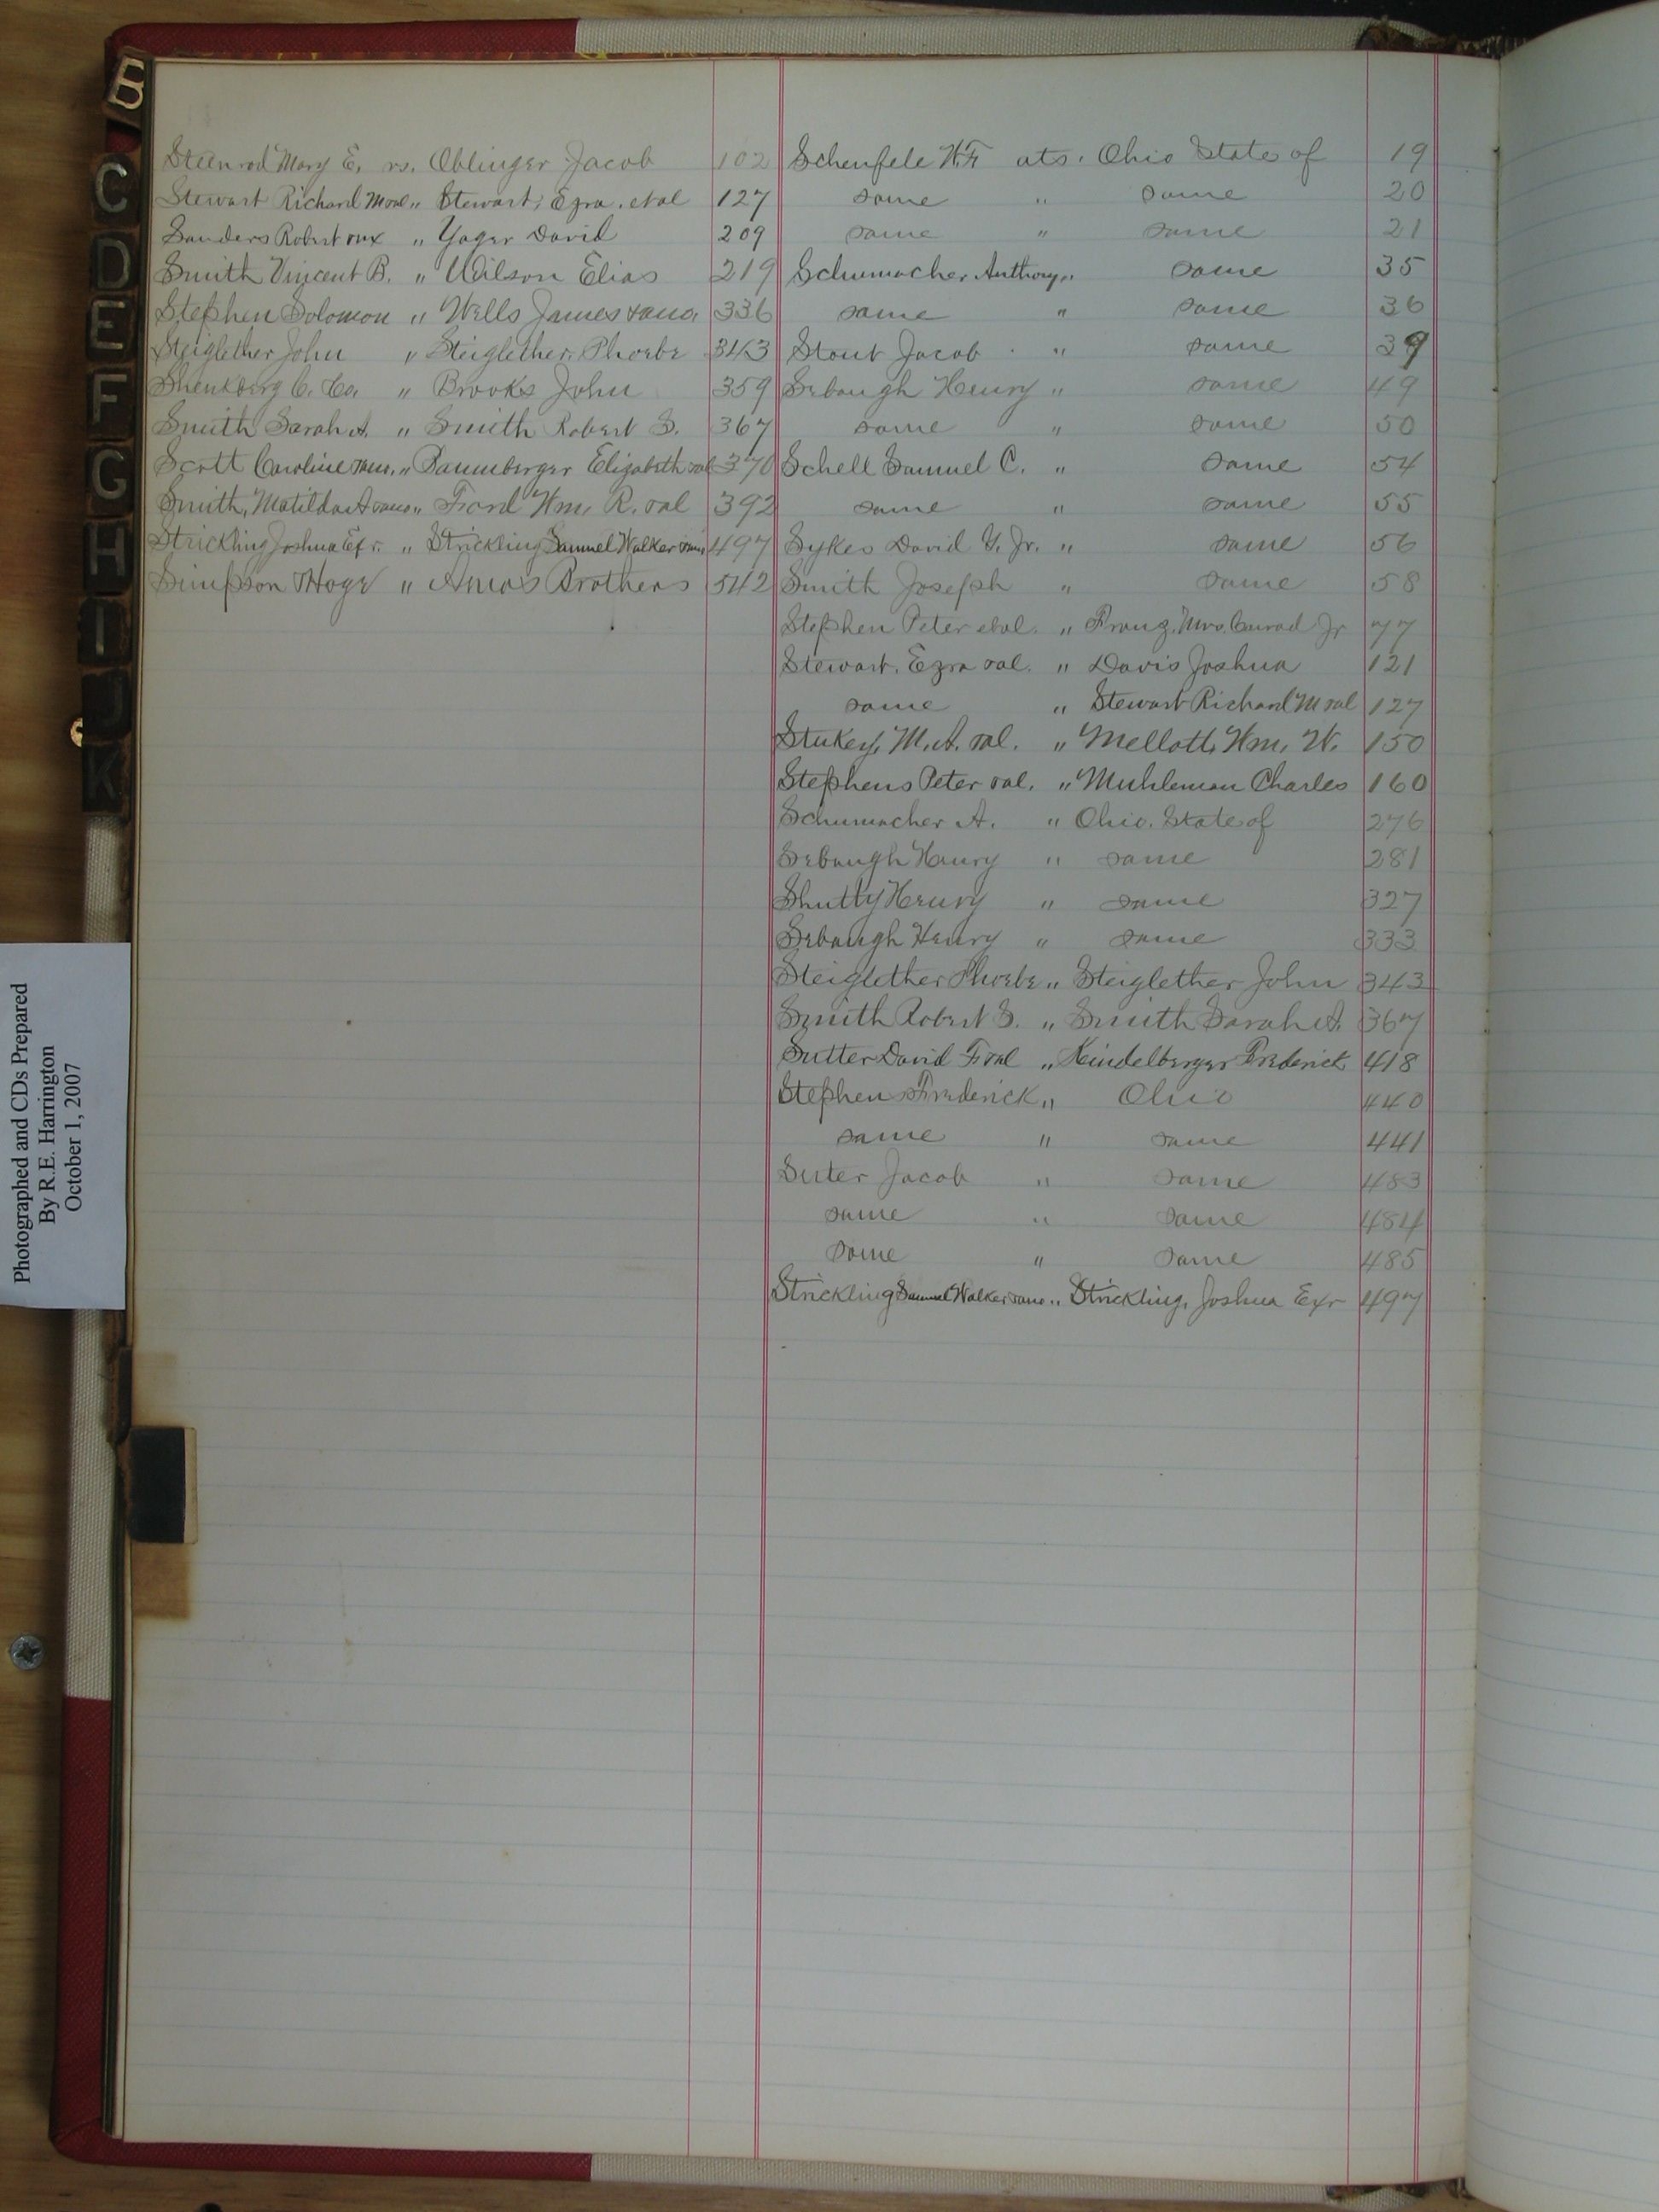 B
C
D
E
F
G
H
I
J
K
Steenrod Mary E. vs. Oblinger Jacob 102
Stewart Richard M &al " Stewart, Ezra. etal 127
Sanders Robert &ux " Yager David 209
Smith Vincent B. " Wilson Elias 219
Stephen Solomon " Wells James &ano. 336
Steiglether John " Steiglether, Phoebe 343
Shenkberg C. Co. " Brooks John 359
Smith Sarah A. " Smith Robert S. 367
Scott Caroline &ano. " Baumberger Elizabeth &al 370
Smith, Matilda A &ano " Ford Wm. R. &al 392
Strickling Joshua Exr. " Strickling Samuel Walker &ano 497
Simpson Hoge " Amos Brothers 542
Schenfele W.F. ats. Ohio State of 19
same " same 20
same " same 21
Schumacher Anthony " same 35
same " same 36
Stout Jacob " same 39
Sebaugh Henry " same 49
same " same 50
Schell Samuel C. " same 54
same " same 55
Sykes David Y. Jr. " same 56
Smith Joseph " same 58
Stephen Peter etal. " Franz, Mrs. Conrad Jr 77
Stewart. Ezra &al. " Davis Joshua 121
same " Stewart Richard M &al 127
Stukey, M. A. &al. " Mellott, Wm. W. 150
Stephens Peter &al. " Muhleman Charles 160
Schumacher A. " Ohio. State of 276
Sebaugh Henry " same 281
Shutty Henry " same 327
Sebaugh Henry " same 333
Steiglether Phoebe " Steiglether John 343
Smith Robert S. " Smith Sarah A. 367
Sutter David F &al " Heindelberger Frederick 418
Stephens Frederick " Ohio 440
same " same 441
Suter Jacob " same 483
same " same 484
same " same 485
Strickling Samuel Walker &ano. " Strickling, Joshua Exr 497
Photographed and CDs Prepared
By R.E. Harrington
October 1, 2007